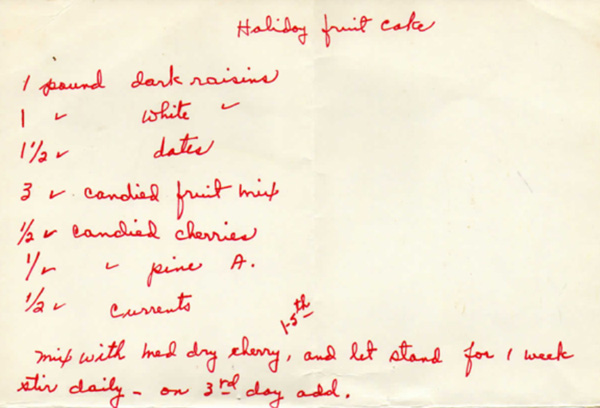 Holiday fruit cake
1 pound dark raisins
1 " white "
1 1/2 " dates
3 " candied fruit mix
1/2 " candied cherries
1/2 " pine A.
1/2 " currents
1-5th
mix with med dry sherry, and let stand for 1 week
stir daily - on 3rd day add.